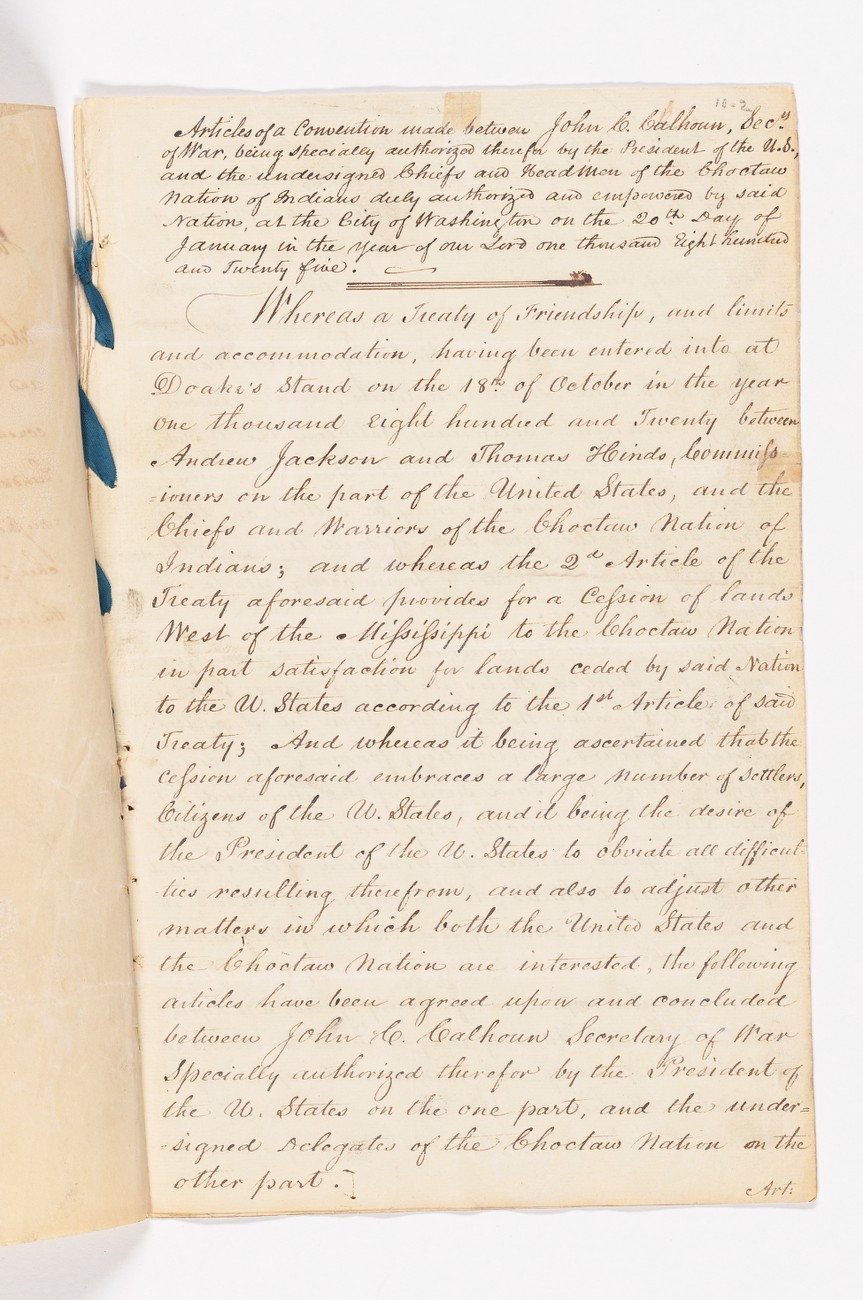 10-2
Articles of a Convention made between John C. Calhoun, Secy.
of War, being specially authorized therefor by the President of the U.S.,
and the undersigned Chiefs and Head Men of the Choctaw
Nation of Indians duly authorized and empowered by said
Nation, at the City of Washington on the 20th Day of
January in the year of our Lord one thousand Eight hundred
and Twenty five.
Whereas a Treaty of Friendship, and limits
and accommodation, having been entered into at
Doake's Stand on the 18th of October in the year
One thousand Eight hundred and Twenty between
Andrew Jackson and Thomas Hinds, Commiss-
-ioners on the part of the United States, and the
Chiefs and Warriors of the Choctaw Nation of
Indians; and whereas the 2d Article of the
Treaty aforesaid provides for a Cession of lands
West of the Mississippi to the Choctaw Nation
in part satisfaction for lands ceded by said Nation
to the U. States according to the 1st Article of said
Treaty; And whereas it being ascertained that the
Cession aforesaid embraces a large number of settlers,
Citizens of the U. States, and it being the desire of
the President of the U. States to obviate all difficul-
-ties resulting therefrom, and also to adjust other
matters in which both the United States and
the Choctaw Nation are interested, the following
articles have been agreed upon and concluded
between John C. Calhoun Secretary of War
Specially authorized therefor by the President of
the U. States on the one part, and the under=
-signed Delegates of the Choctaw Nation on the
other part.]
Art: